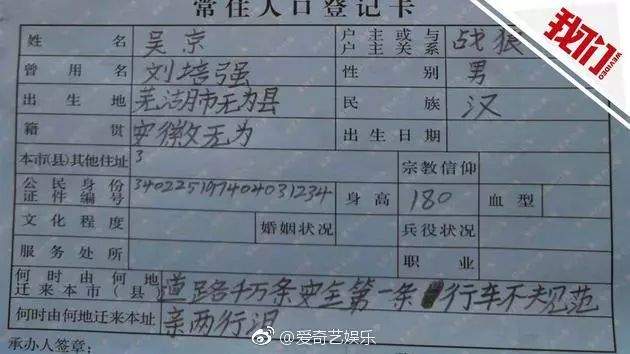 常住人口登记卡
我们
WEVIDEO
姓名 吴京 户主或与户主关系 战狼
曾用名 刘培强 性别 男
出生地 芜湖市无为县 民族 汉
籍贯 安徽无为 出生日期
本市(县)其他住址 3 宗教信仰
公民身份证件编号 340225197404031234 身高 180 血型
文化程度 婚姻状况 兵役状况
服务处所 职业
何时由何地迁来本市(县) 道路千万条安全第一条 行车不规范
何时由何地迁来本址 亲两行泪
承办人签章:
@爱奇艺娱乐